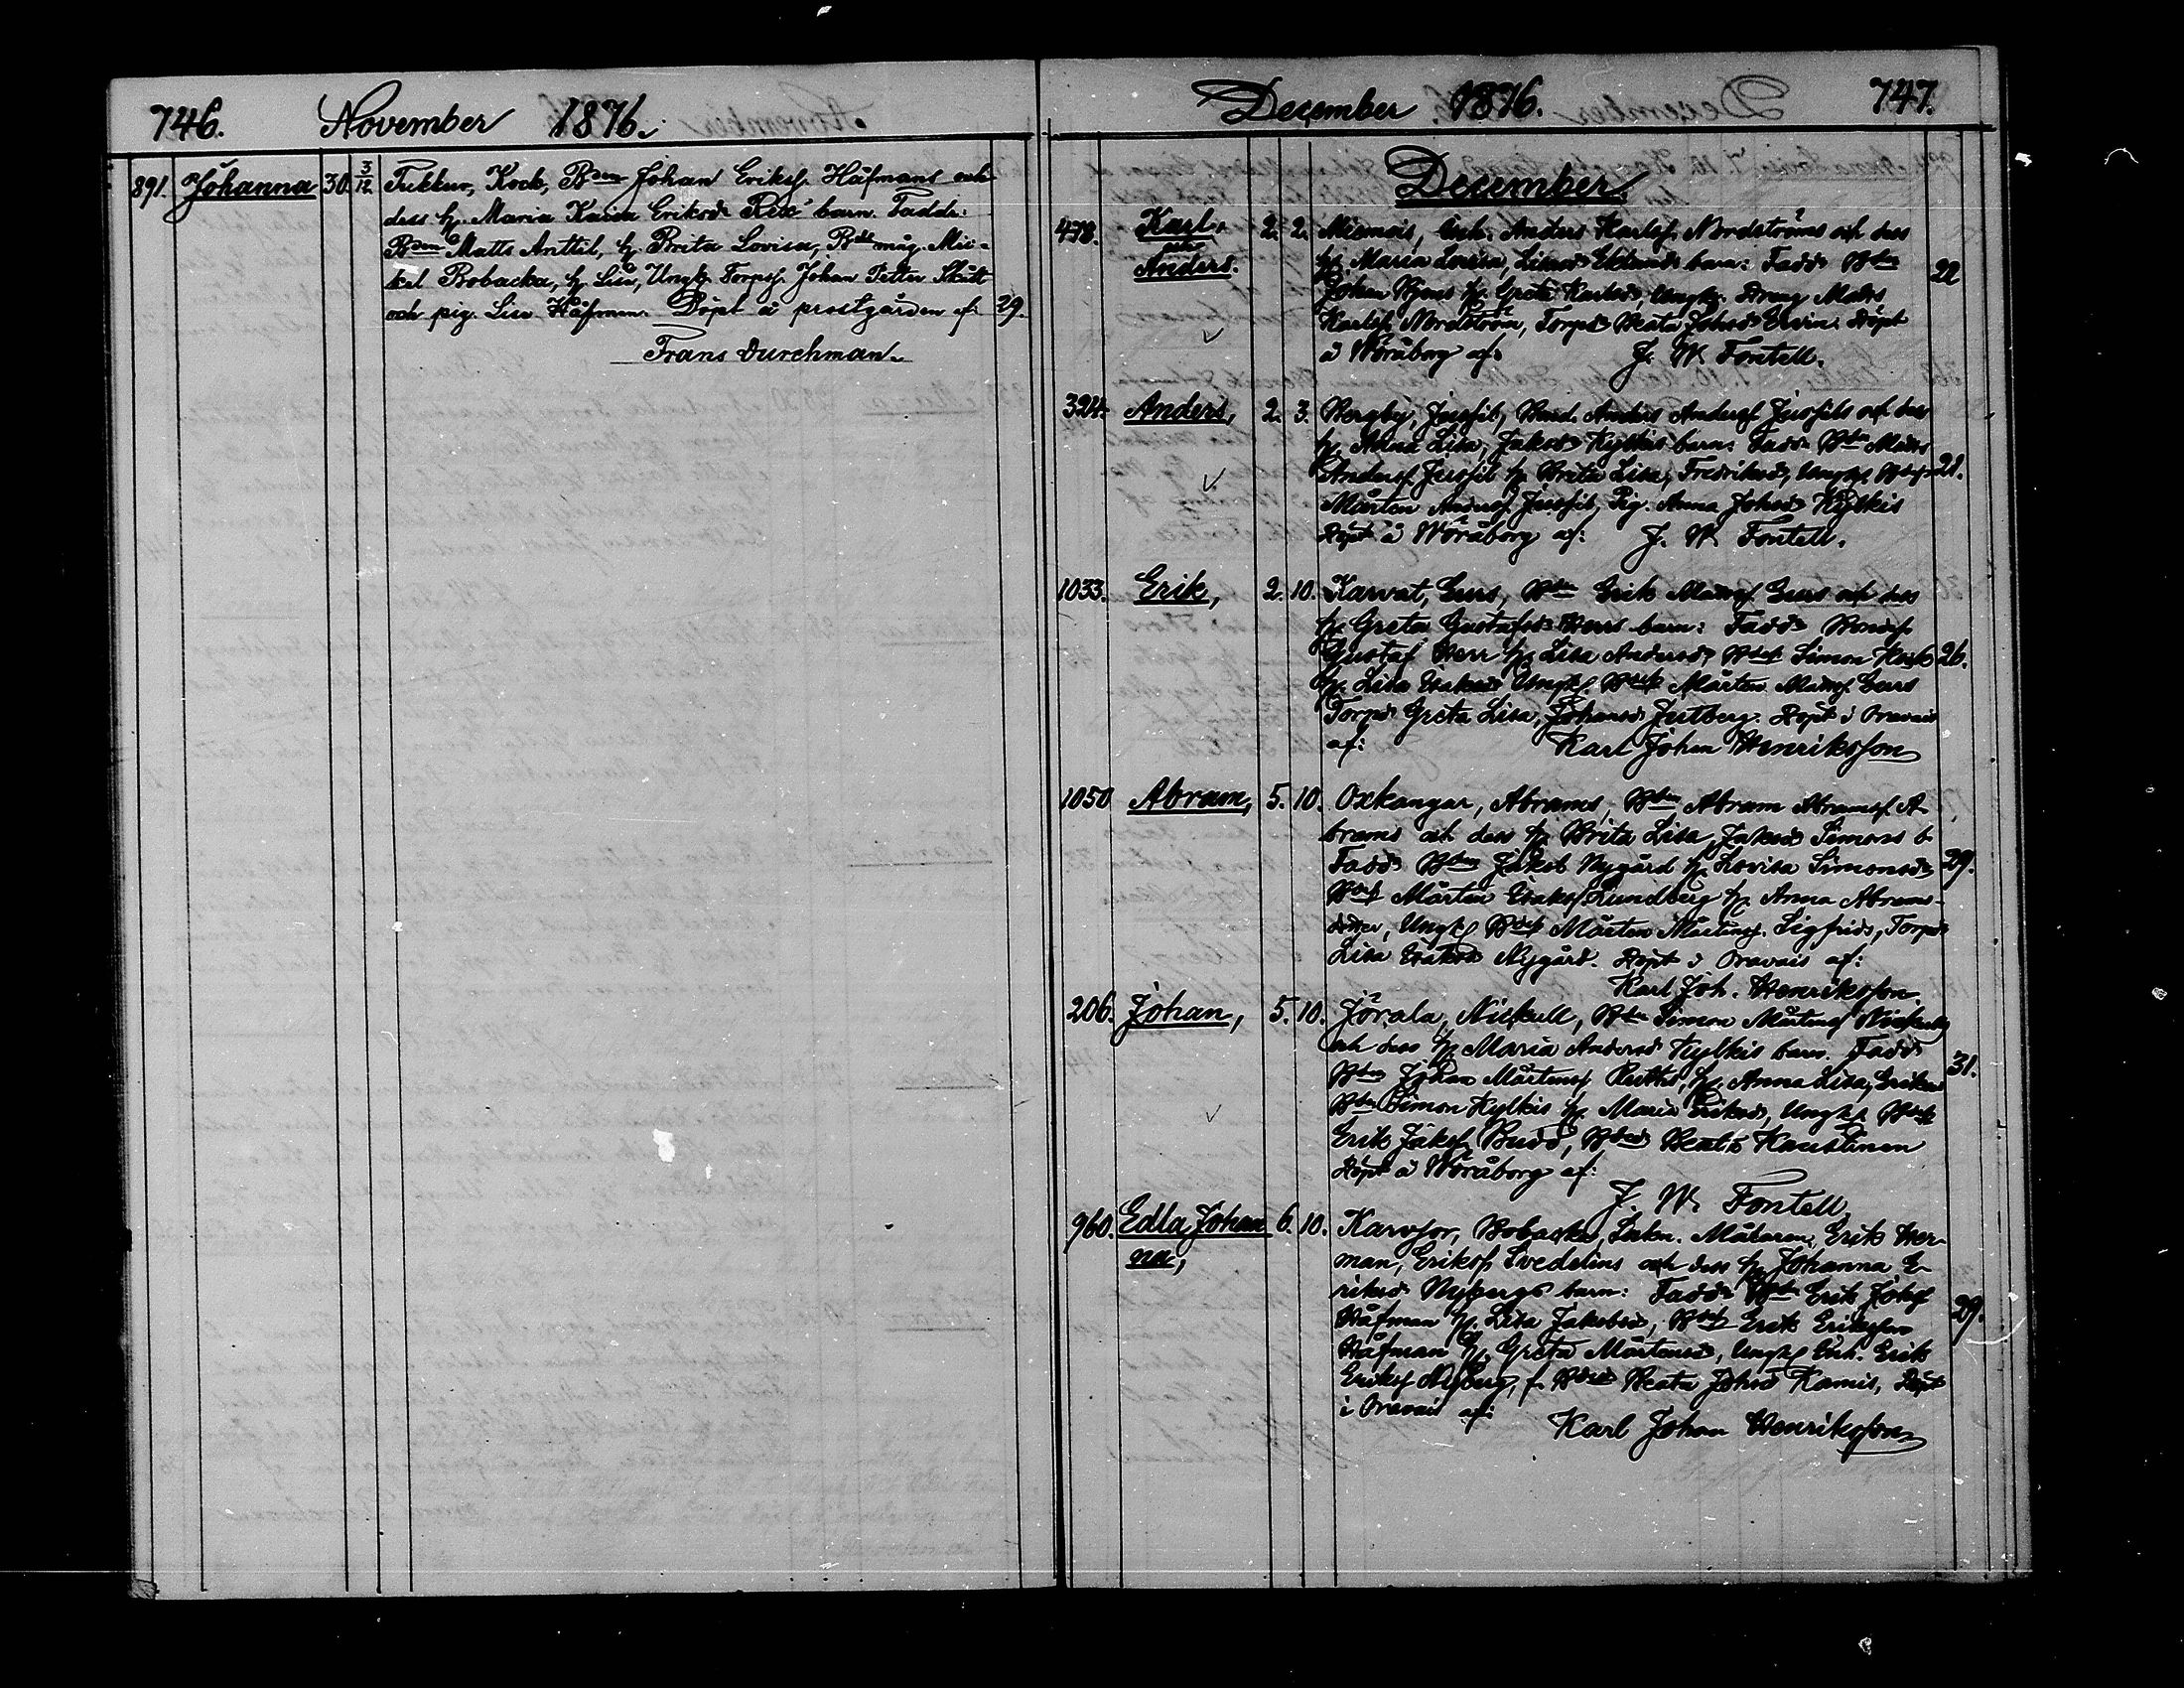 746. November 1876.
891. Johanna 30. 3/12. Tukkur, Kock, Bden Johan Eriksf. Håfmans och
dess h. Maria Kajsa Eriksdr Rex' barn. Fadd:
Bden Matts Anttil, h. Brita Lovisa, Bde måg. Mic-
kel Bobacka, h. Lisa, Ungk. Torpsf. Johan Petter Skütt
och pig. Lisa Håfman. Döpt å prostgården af: 29.
Frans Durchman.
December 1876. 747.
December.
478. Karl, 2. 2. Miemois, Anders Karlsf. Nordströms och dess
och
Anders. h. Maria Lovisa, Eklunds barn: Fadd. Bden 22
Johan h. Greta Karlsdr, Ungk. Dreng Matts
Karlsf. Nordström, Torpdr Beata Johsdr Döpt
å Wöråborg af: J. W. Fontell.
324. Anders, 2. 3. Bergby, Jussil, Bond. Anders Andersf. Jussils och dess
h. Anna Lisa, Jakobsdr Kylkis barn: Fadd. Bden Matts
Andersf. Jussil h. Brita Lisa, Fredriksdr, Ungk. 28.
Mårten Andersf. Jussil, Pig. Anna Johsdr Kylkis
Döpt å Wöråborg af: J. W. Fontell.
1033. Erik, 2. 10. Karvat, Eurs, Bden Erik Mattsf. Eurs och dess
h. Greta Gustafsdr Herrs barn: Fadd. Bondsf.
Gustaf Herr h. Lisa Andersdr, Bdesf. Simon 26.
h. Lisa Isaksdr Ungk. Bdesf. Mårten Mattsf. Eurs
Torpdr Greta Lisa, Johansdr Jutberg. Döpt i Oravais
af: Karl Johan Henriksson
1050 Abram, 5. 10. Oxkangar, Abrams, Bden Abram Abramsf. A-
brams och dess h. Brita Lisa, Jakobsdr Simons b.
Fadd. Bden Jakob Nygård h. Lovisa Simonsdr, 29.
Bdesf. Mårten Isaksf. Lundberg h. Anna Abrams-
dotter, Ungk. Bdesf. Mårten Mårtensf. Sigfrids, Torpdr
Lisa Isaksdr Nygård. Döpt i Oravais af:
Karl Joh. Henriksson.
206. Johan, 5. 10. Jörala, Nickull, Bden Simon Mårtensf. Nickulls
och dess h. Maria Andersdr Kylkis barn. Fadd.
Bden Johan Mårtensf. h. Anna Lisa, Eriksdr 31.
Bden Simon Kylkis h. Maria Eriksdr, Ungk. Bdesf.
Erik Jakobsf. Budd, Bdedr Beata Kaustinen
Döpt å Wöråborg af:
J. W. Fontell.
960. Edla Johan- 6. 10. Karvsor, Bobacka, Målaren, Erik Her-
na, man, Eriksf. Svedelins och dess h. Johanna E-
riksdr Nybergs barn: Fadd. Bden Erik Johsf.
Håfman h. Lisa Jakobsdr, Bdesf. Erik Eriksson 29.
Håfman h. Greta Mårtensdr, Ungk. Erik
Eriksf. Nyberg, f. Bdedr Beata Johsdr Kamis, Döpt
i Oravais af: Karl Johan Henriksson